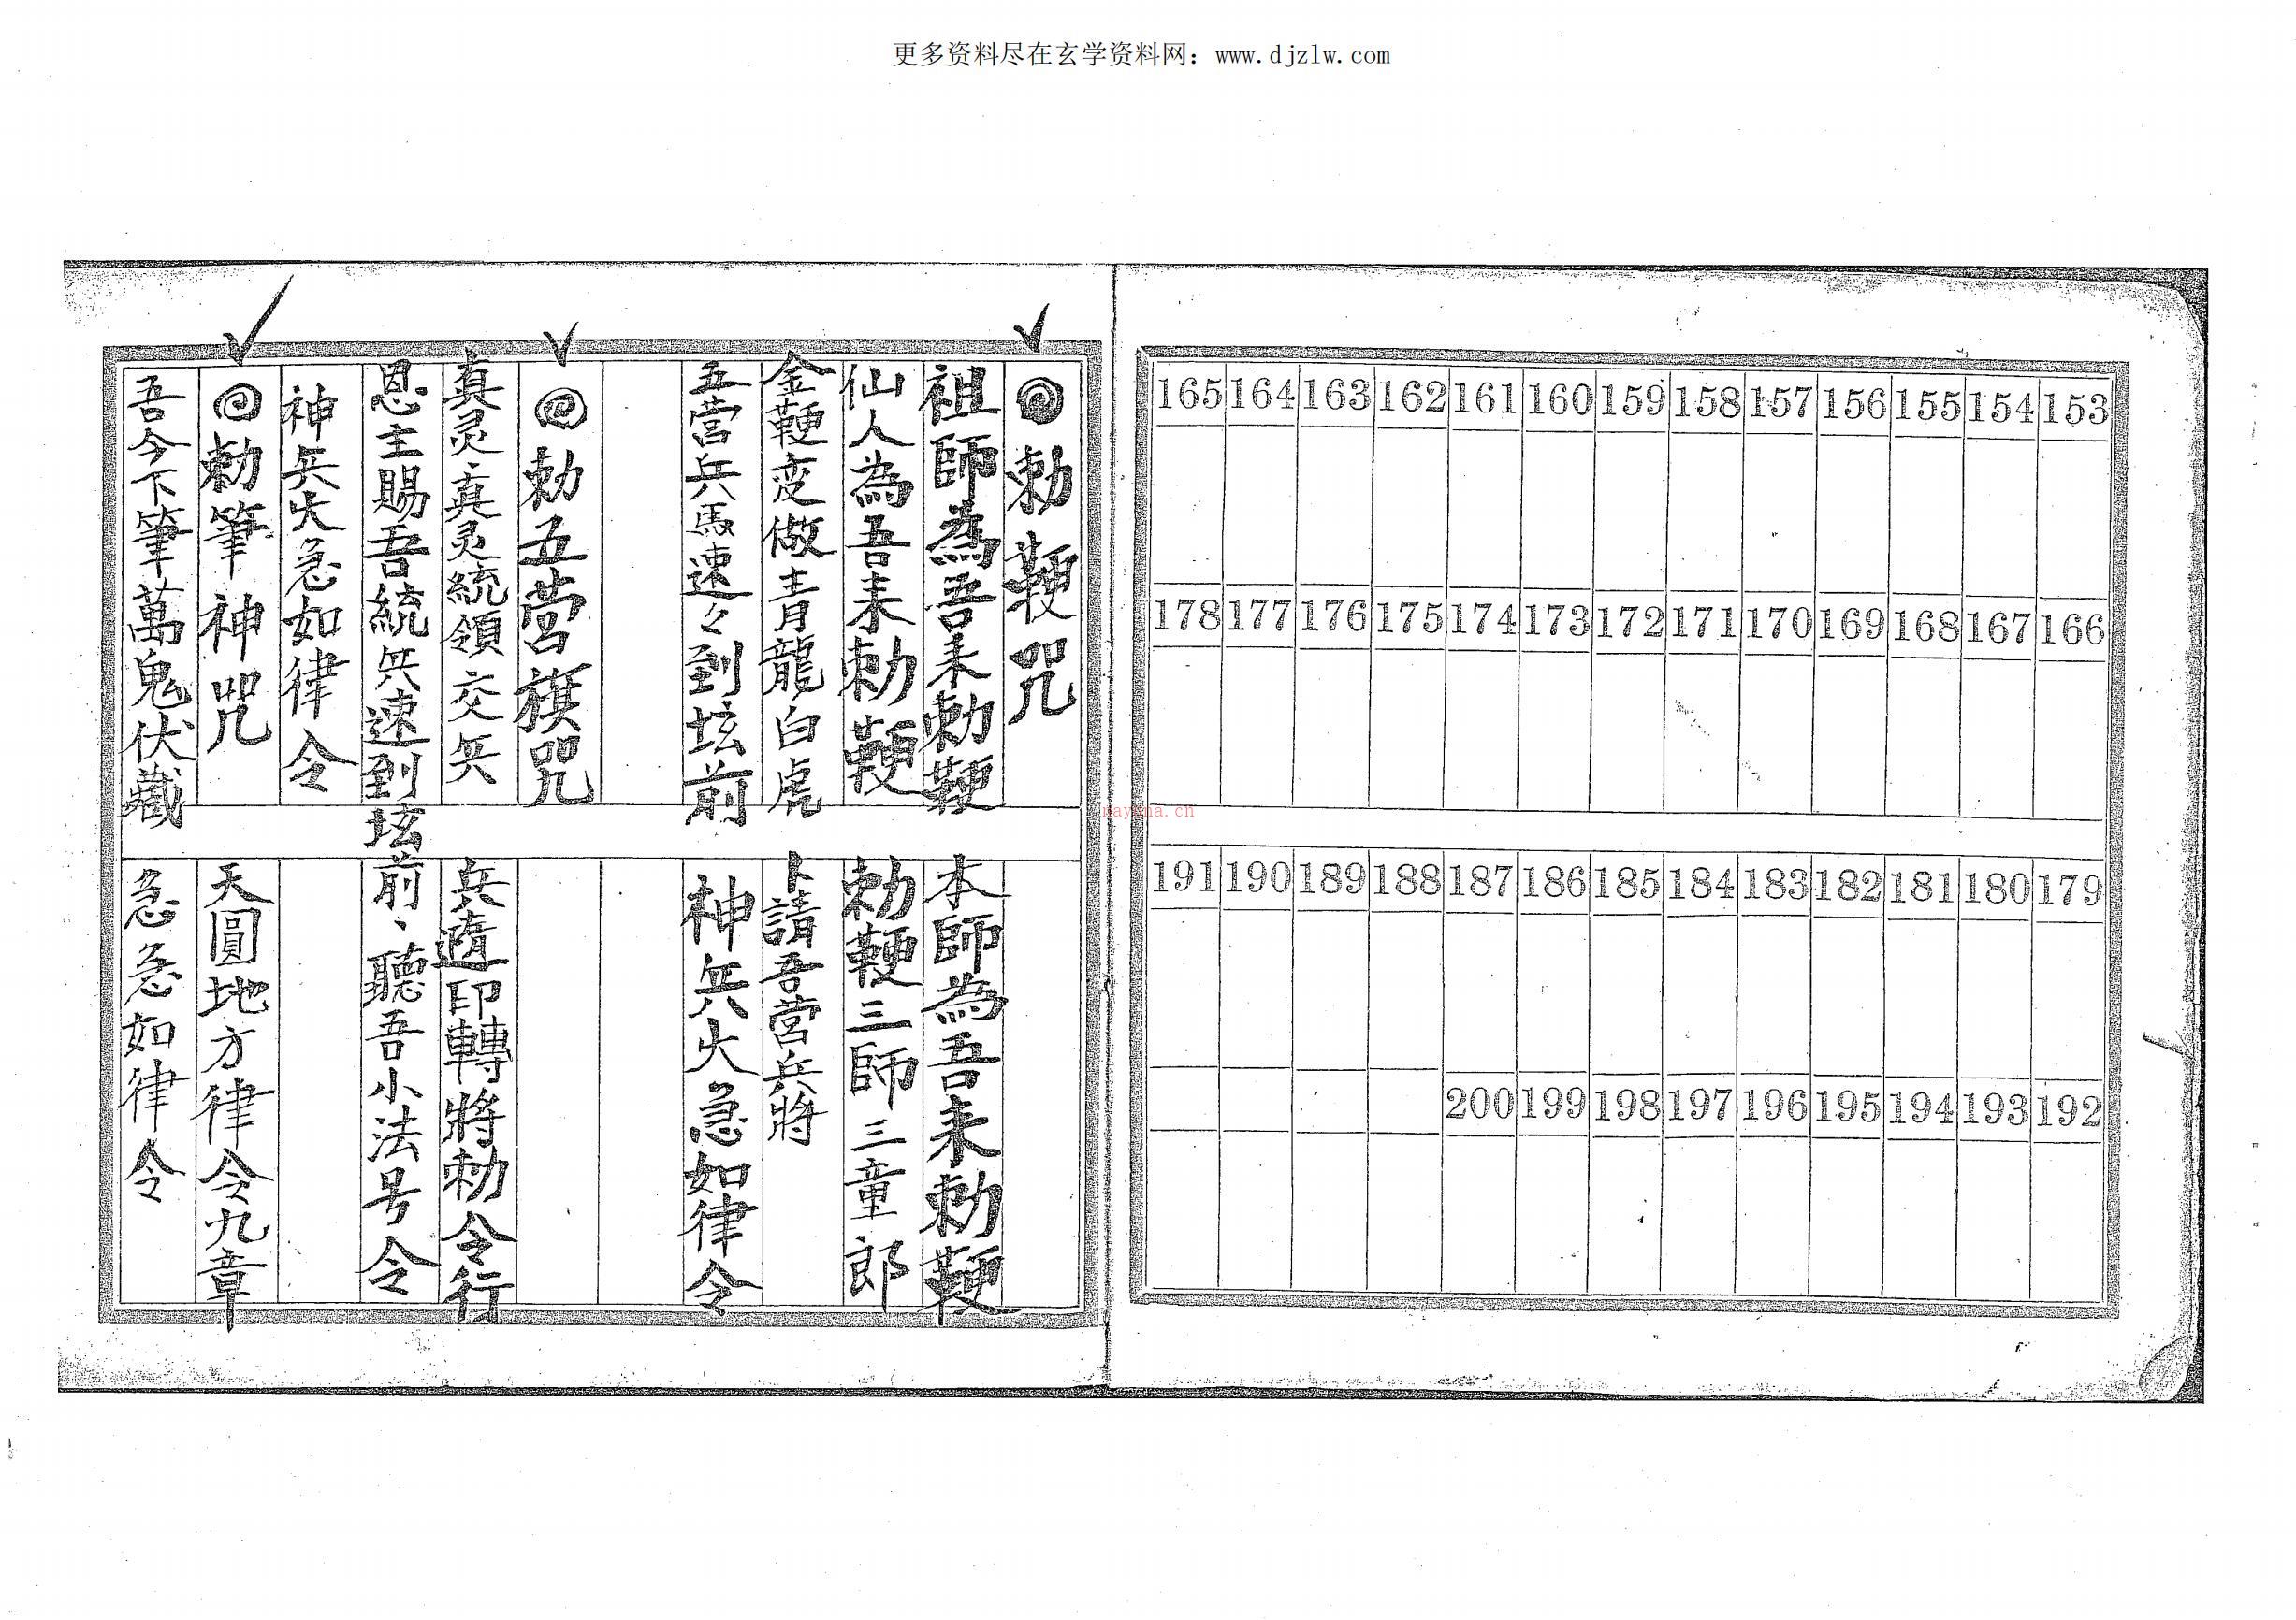 更多资料尽在玄学资料网：www.djzlw.com
165 164 163 162 161 160 159 158 157 156 155 154 153
178 177 176 175 174 173 172 171 170 169 168 167 166
191 190 189 188 187 186 185 184 183 182 181 180 179
200 199 198 197 196 195 194 193 192
勅鞕咒
祖師為吾来勅鞕 本師為吾来勅鞕
仙人為吾来勅鞕 勅鞕三師三童郎
金鞕变做青龍白虎 卜請吾營兵將
五营兵馬速々到坛前 神兵火急如律令
勅五营旗咒
真灵真灵統領交兵 兵遁印轉將勅令行
恩主賜吾統兵速到坛前、聽吾小法号令
神兵火急如律令
勅筆神咒 天圓地方律令九章
吾今下筆萬鬼伏藏 急急如律令